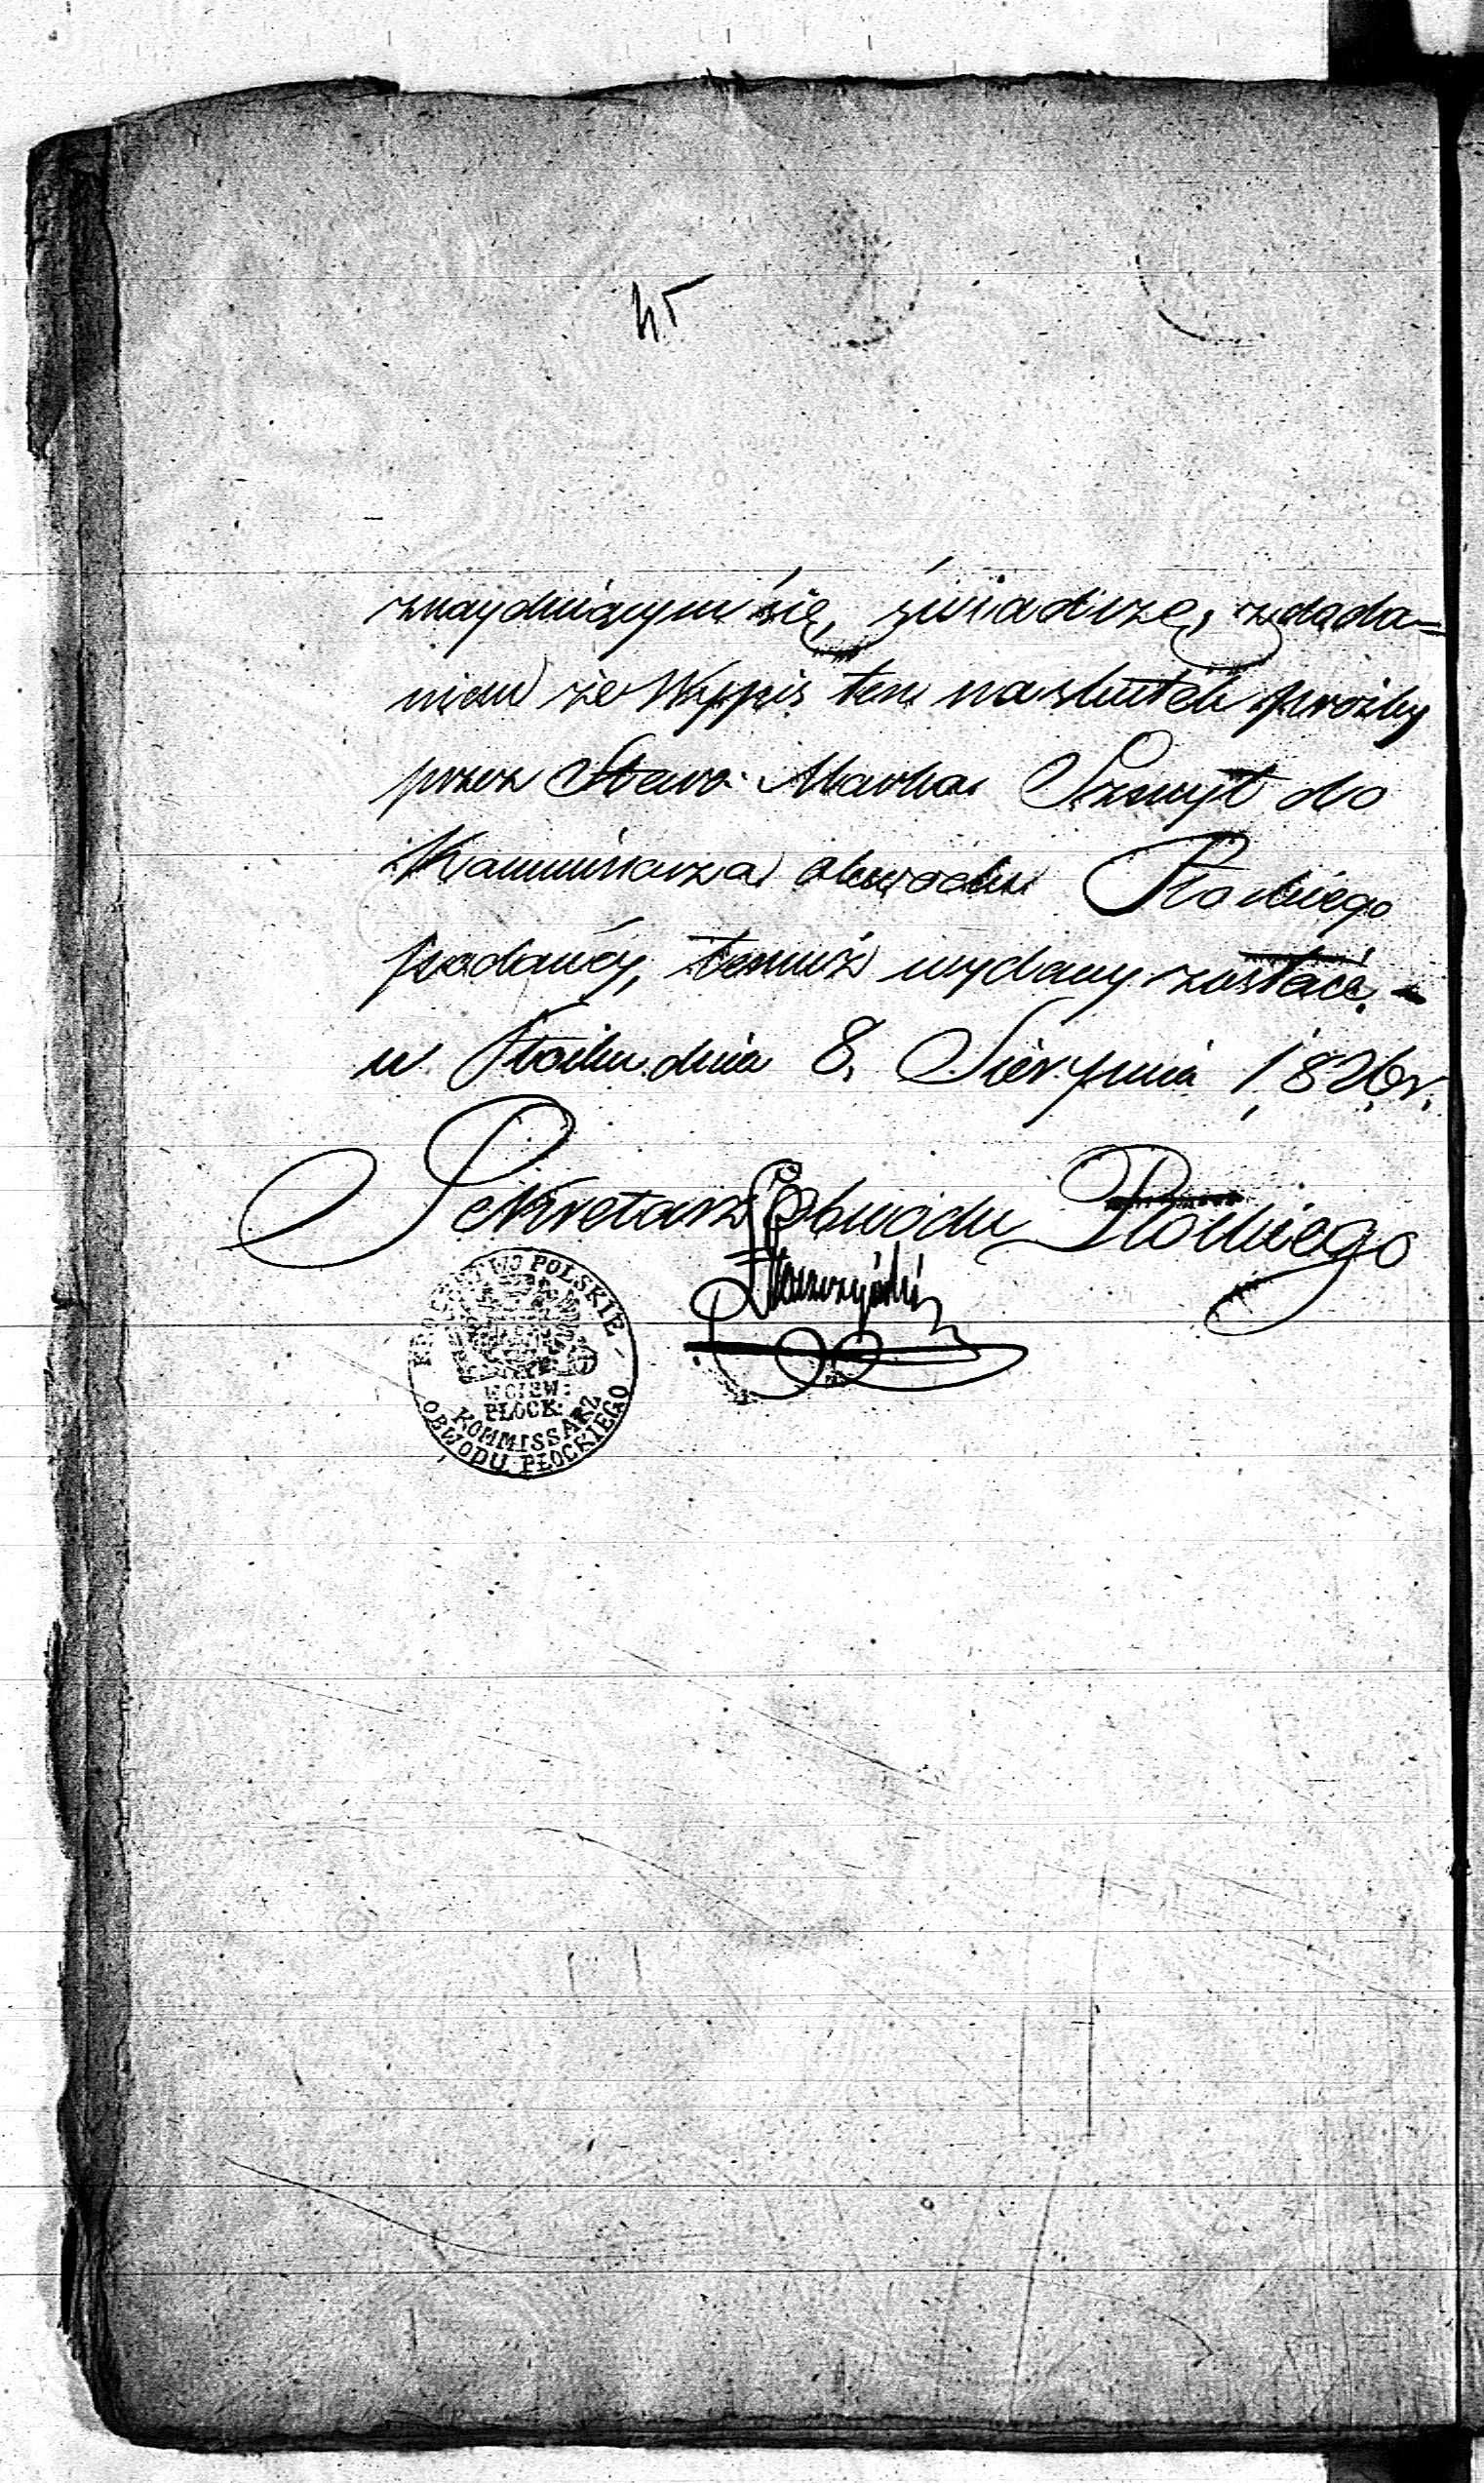 45
znayduiącym się, świadczę, z doda=
niem że Wypis ten na skutek prozby
przez Staro: Marka Szmyt do
Kommissarza obwodu Płockiego
podaney, temuż wydany został. -
w Płocku dnia 8. Sierpnia 1826 r.
Sekretarz Obwodu Płockiego
KROLESTWO POLSKIE
WOIEW:
PŁOCK:
KOMMISSARZ
OBWODU PŁOCKIEGO